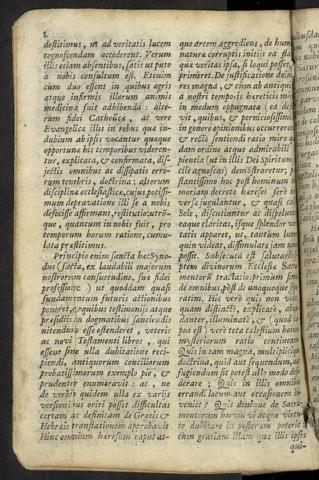 destitimus, in ad veritatis lucem
cognoscendam accederent. Verum
illis etiam absentibus, satis ut puto
à nobis consultum est. Etenim
cum duo essent in quibus agris
atque infirmis illorum animis
medicina fuit adhibenda: alte-
rum fidei Catholicæ, ac vere
Evangelicæ illis in rebus qua in-
dubium ab ipsis vocantur quaque
opportuna his temporibus videren-
tur, explicata, & confirmata, dis-
jectis omnibus ac dissipatis erro-
rum tenebris, doctrina: alterum
disciplina ecclesiastica, cujus potissi-
mum depravatione illi se à nobis
defecisse affirmans, restitutio: utrū-
que, quantum in nobis fuit, pro
temporum horum ratione, cumu-
lata præstitimus.
Principio enim sancta hæc Syno-
dus (facta, ex laudabili majorum
nostrorum consuetudine, suæ fidei
professione) ut quoddam quasi
fundamentum futuris actionibus
poneret, & quibus testimoniis atque
præsidiis in dogmatibus sanciendis
nitendum esse ostenderet, veteris
ac novi Testamenti libros, qui
essent sine ulla dubitatione reci-
piendi, antiquorum conciliorum
probatissimorum exemplo piè, &
prudenter enumeravit: ac, ne
de verbis quidem ulla ex variis
versionibus oriri posset difficultas
certam ac definitam de Græcis &
Hebræis translationem approbavit
Hinc omnium hæresum caput at-
que arcem aggrediens, de hum
natura corruptis initiis ea
que veritas ipsa, si loqui posset,
primeret. De justificatione dein
res magna, & cum ab antiquis
à nostri temporis hæreticis
in modum oppugnata (ea
vit, quibus, & perniciosissimis
in genere opinionibus occurreret
& rectè sentiendi ratio miro
dam ordine atque admirabili
pientia (ut in illis Dei Spiritum
cilè agnoscas) demōstraretur,
stantissimo hoc post hominum
moriam decreto hæreses ferè
versa jugulantur, & quasi
Sole, discutiuntur ac dispelluntur
eaque claritas, isque splendor
tatis apparet, ut, tantam lu
quin videat, dissimulare jam
possit. Subsecuta est salutaris
ptem divinorum Ecclesiæ Sacra
mentorū tractatio: primùm
de omnibus, post de unoquoque
ratim. Hic verò quis non vid
quàm distinctè, explicatè,
danter, illuminatè, & (quod
pus est) verè tota cælestium horum
mysteriorum ratio contineatur
Quis in tam magna, multiplici
doctrina, quid aut sequendum,
fugiendum sit potest ullo modo
derare; Quis in illis omnibus
errandi locum aut occasionem in
veniet? Quis denique de Sacra-
mentorum horum vi atque virtu
te dubitare iis posterum poterit
cùm gratiam illam qua illis ipsis
qui-